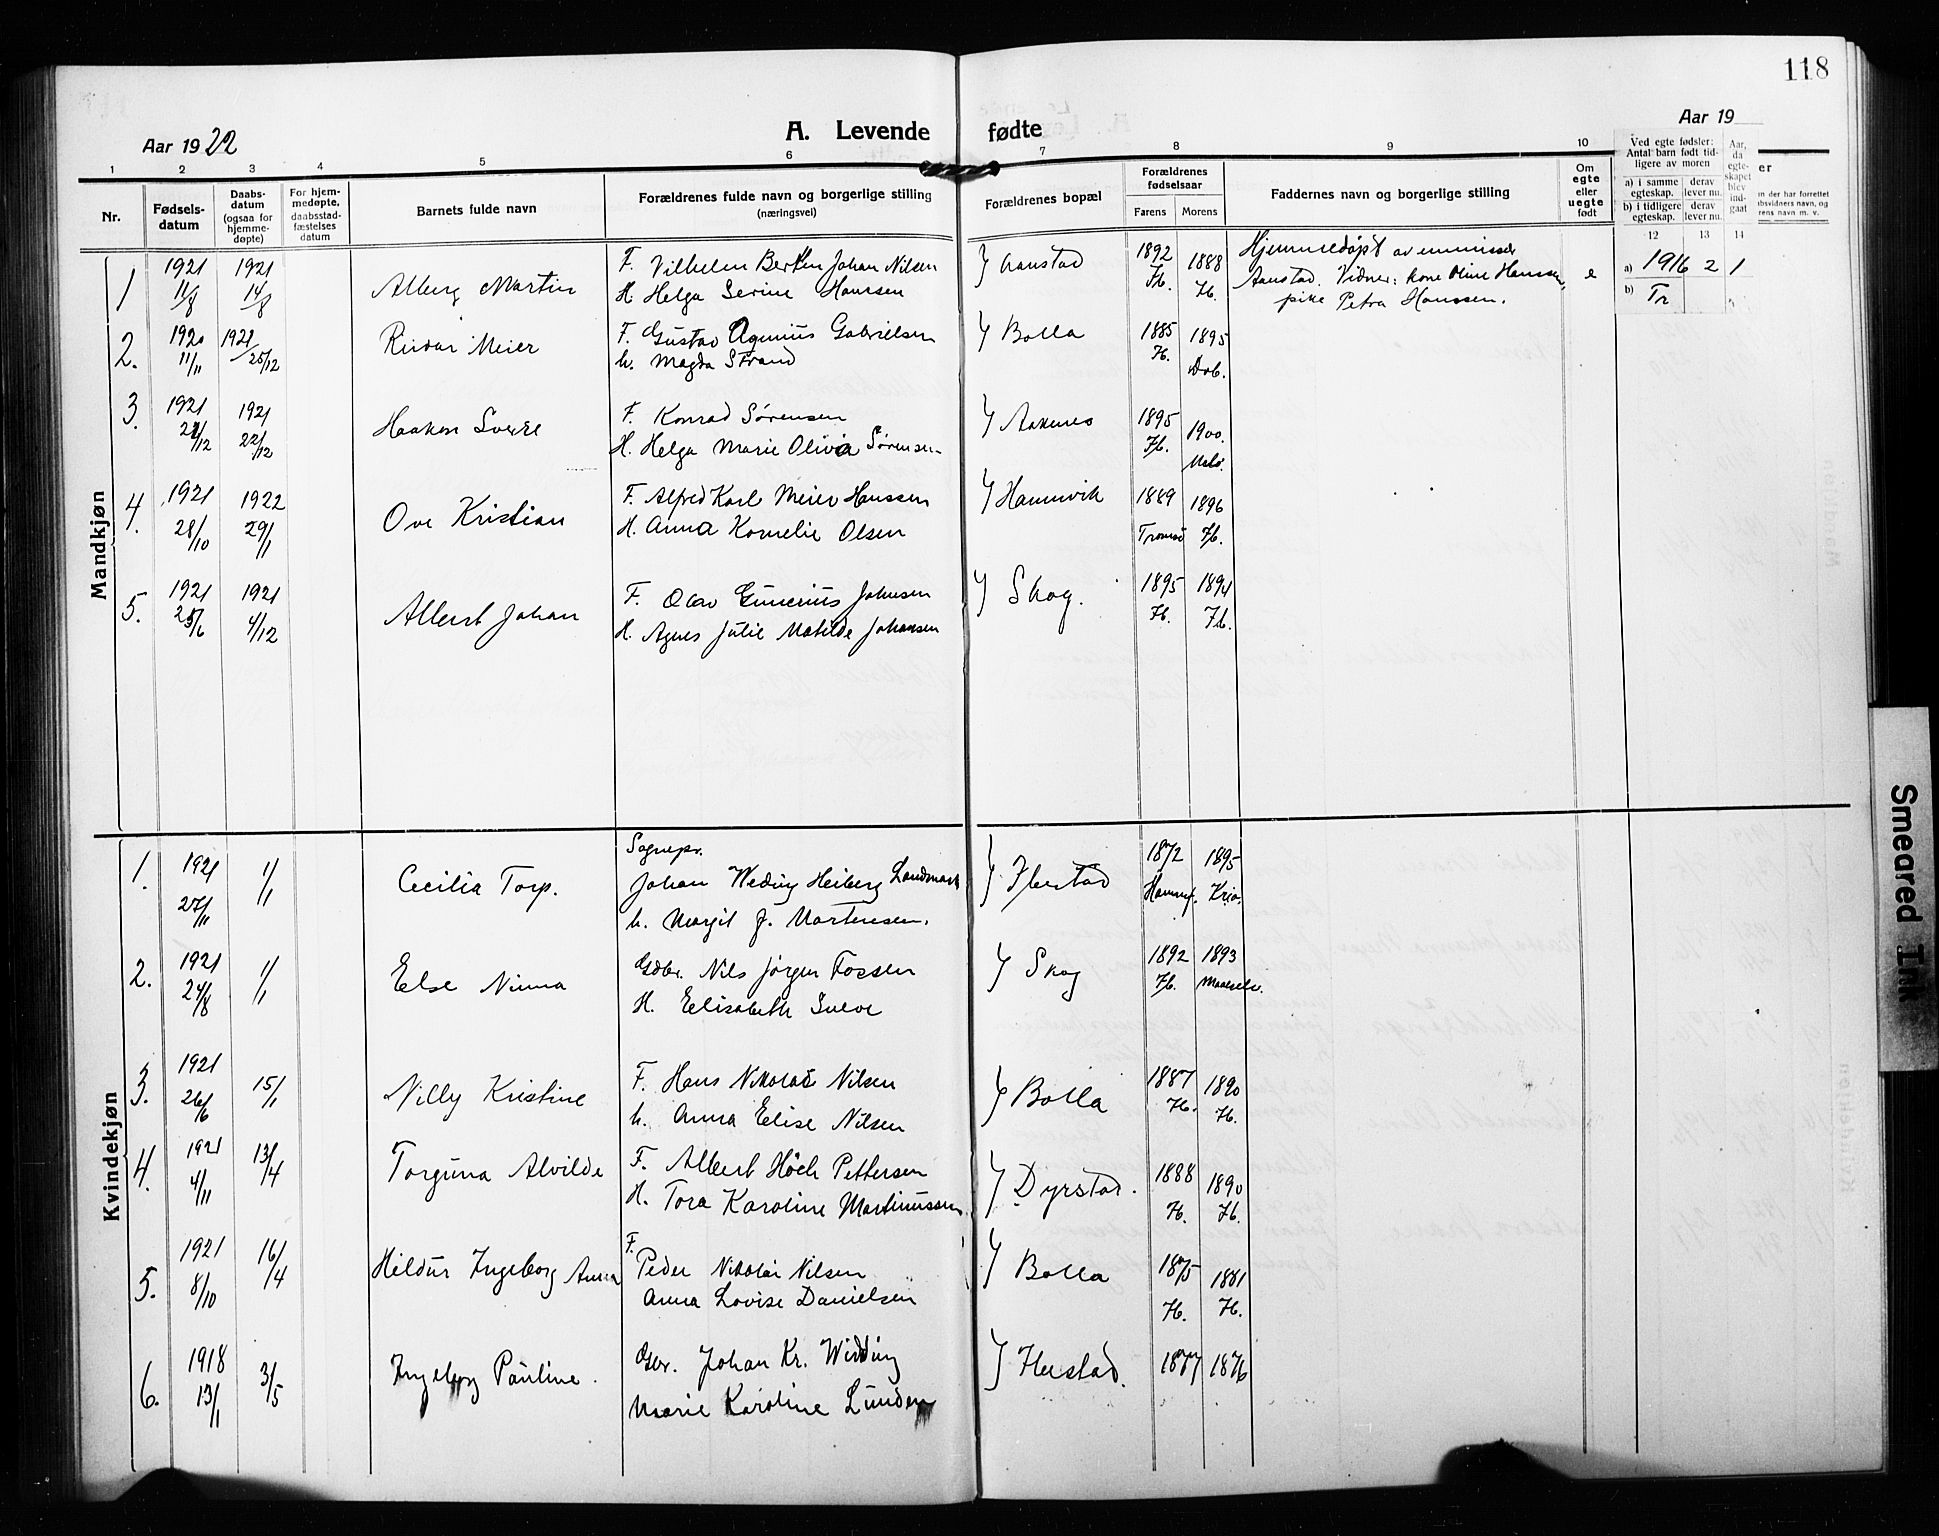 118
Aar 1922
A. Levende fødte
Aar 19
1 2 3 4 5 6 7 8 9 10
Nr.
Fødsels-
datum
Daabs-
datum
(ogsaa for
hjemme-
døpte)
For hjem-
medøpte,
daabsstad-
fæstelses
datum
Barnets fulde navn
Forældrenes fulde navn og borgerlige stilling
(næringsvei)
Forældrenes bopæl
Forældrenes
fødselsaar
Farens Morens
Faddernes navn og borgerlige stilling
Om
egte
eller
uegte
født
Ved egte fødsler:
Antal barn født tid-
ligere av moren
a) i samme
egteskap.
derav
lever nu.
b) i tidligere
egteskap.
derav
lever nu.
Aar,
da
egte-
skapet
blev
ind-
gaat
12 13 14
er
n der har forrettet
bsvidners navn, og
rens navn m. v.
Mandkjøn
1 1921 11/8 1921 14/8 Alberg Martin
F. Vilhelm Bertin Johan Nilsen
H. Helga Serine Hanssen
Aanstad 1892 Ib. 1888 Ib.
Hjemmedøpt av emmissær
Aanstad. Vidner: kone Oline Hanssen,
pike Petra Hanssen.
e
a) 1916 2 1
b) Tr
2. 1920 11/11 1921 25/12 Reidar Meier
F. Gustav Agnius Gabrielsen
h. Magda Strand
Bolla 1885 Ib. 1895
3. 1921 1921 22/12 Haakon Sverre
F. Konrad Sørensen
H. Helga Marie Olivia Sørensen
Aakenes 1895 Ib. 1900
4. 1921 28/10 1922 29/1 Ove Kristian
F. Alfred Karl Meier Hanssen
H. Anna Kornelie Olsen
Hamnvik 1889 Tromsø 1896 Ib.
5. 1921 25/6 1921 4/12 Albert Johan
F. Olav Gunerius Johnsen
H. Agnes Julie Matilde Johansen
Skog. 1895 Ib. 1894 Ib.
Kvindekjøn
1. 1921 27/11 1/1 Cecilia Torp.
Sognepr.
Johan Weding Heiberg Landmark
h. Margit J. Mortensen.
Ibestad 1872 Hammf. 1895 Kria.
2. 1921 24/8 1/1 Else Ninna
Gdbr. Nils Jørgen Fossen
H. Elisabeth
Skog 1892 Ib. 1893 Maalselv.
3. 1921 26/6 15/1 Nilly Kristine
F. Hans Nikolai Nilsen
h. Anna Elise Nilsen
Bolla 1887 Ib. 1890 Ib.
4. 1921 4/11 13/4 Torguna Alvilde
F. Albert Höeh Pettersen
H. Tora Karoline Martinussen
Dyrstad. 1888 Ib. 1890 Ib.
5. 1921 8/10 16/4 Hildur Ingeborg Anna
F.
Peder Nikolai Nilsen
Anna Lovise Danielsen
Bolla 1875 Ib. 1881 Ib.
6. 1918 13/1 3/5 Ingeborg Pauline.
Gbr. Johan Kr. Widding
Marie Karoline Lunden
Ibestad. 1877 1876
Smeared Ink